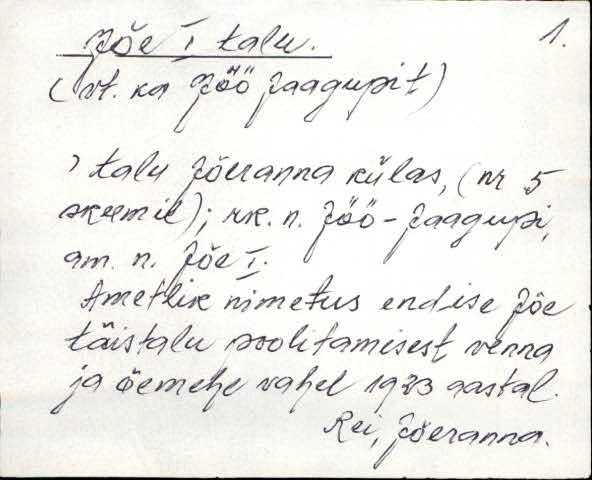 1.
Jõe I talu.
(vt. ka Jöö Jaagupit)
, talu Jõeranna külas, (nr 5
skeemil); rk. n. Jöö-Jaagupi,
am. n. Jõe I.
Ametlik nimetus endise Jõe
täistalu poolitamisest venna
ja õemehe vahel 1933 aastal.
Rei, Jõeranna.